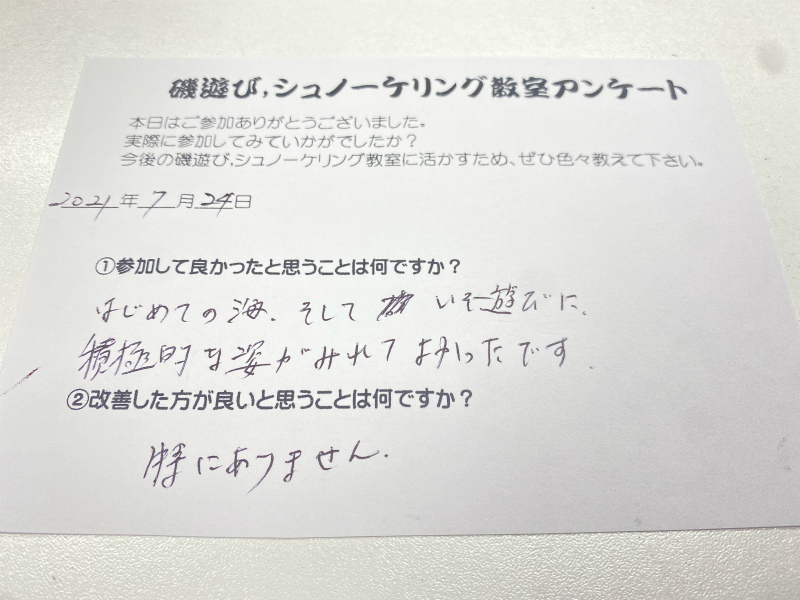 磯遊び,シュノーケリング教室アンケート
本日はご参加ありがとうございました。
実際に参加してみていかがでしたか？
今後の磯遊び,シュノーケリング教室に活かすため、ぜひ色々教えて下さい。
2021年7月24日
①参加して良かったと思うことは何ですか？
はじめての海、そして いそ遊びに、
積極的な姿がみれてよかったです.
②改善した方が良いと思うことは何ですか？
特にありません.